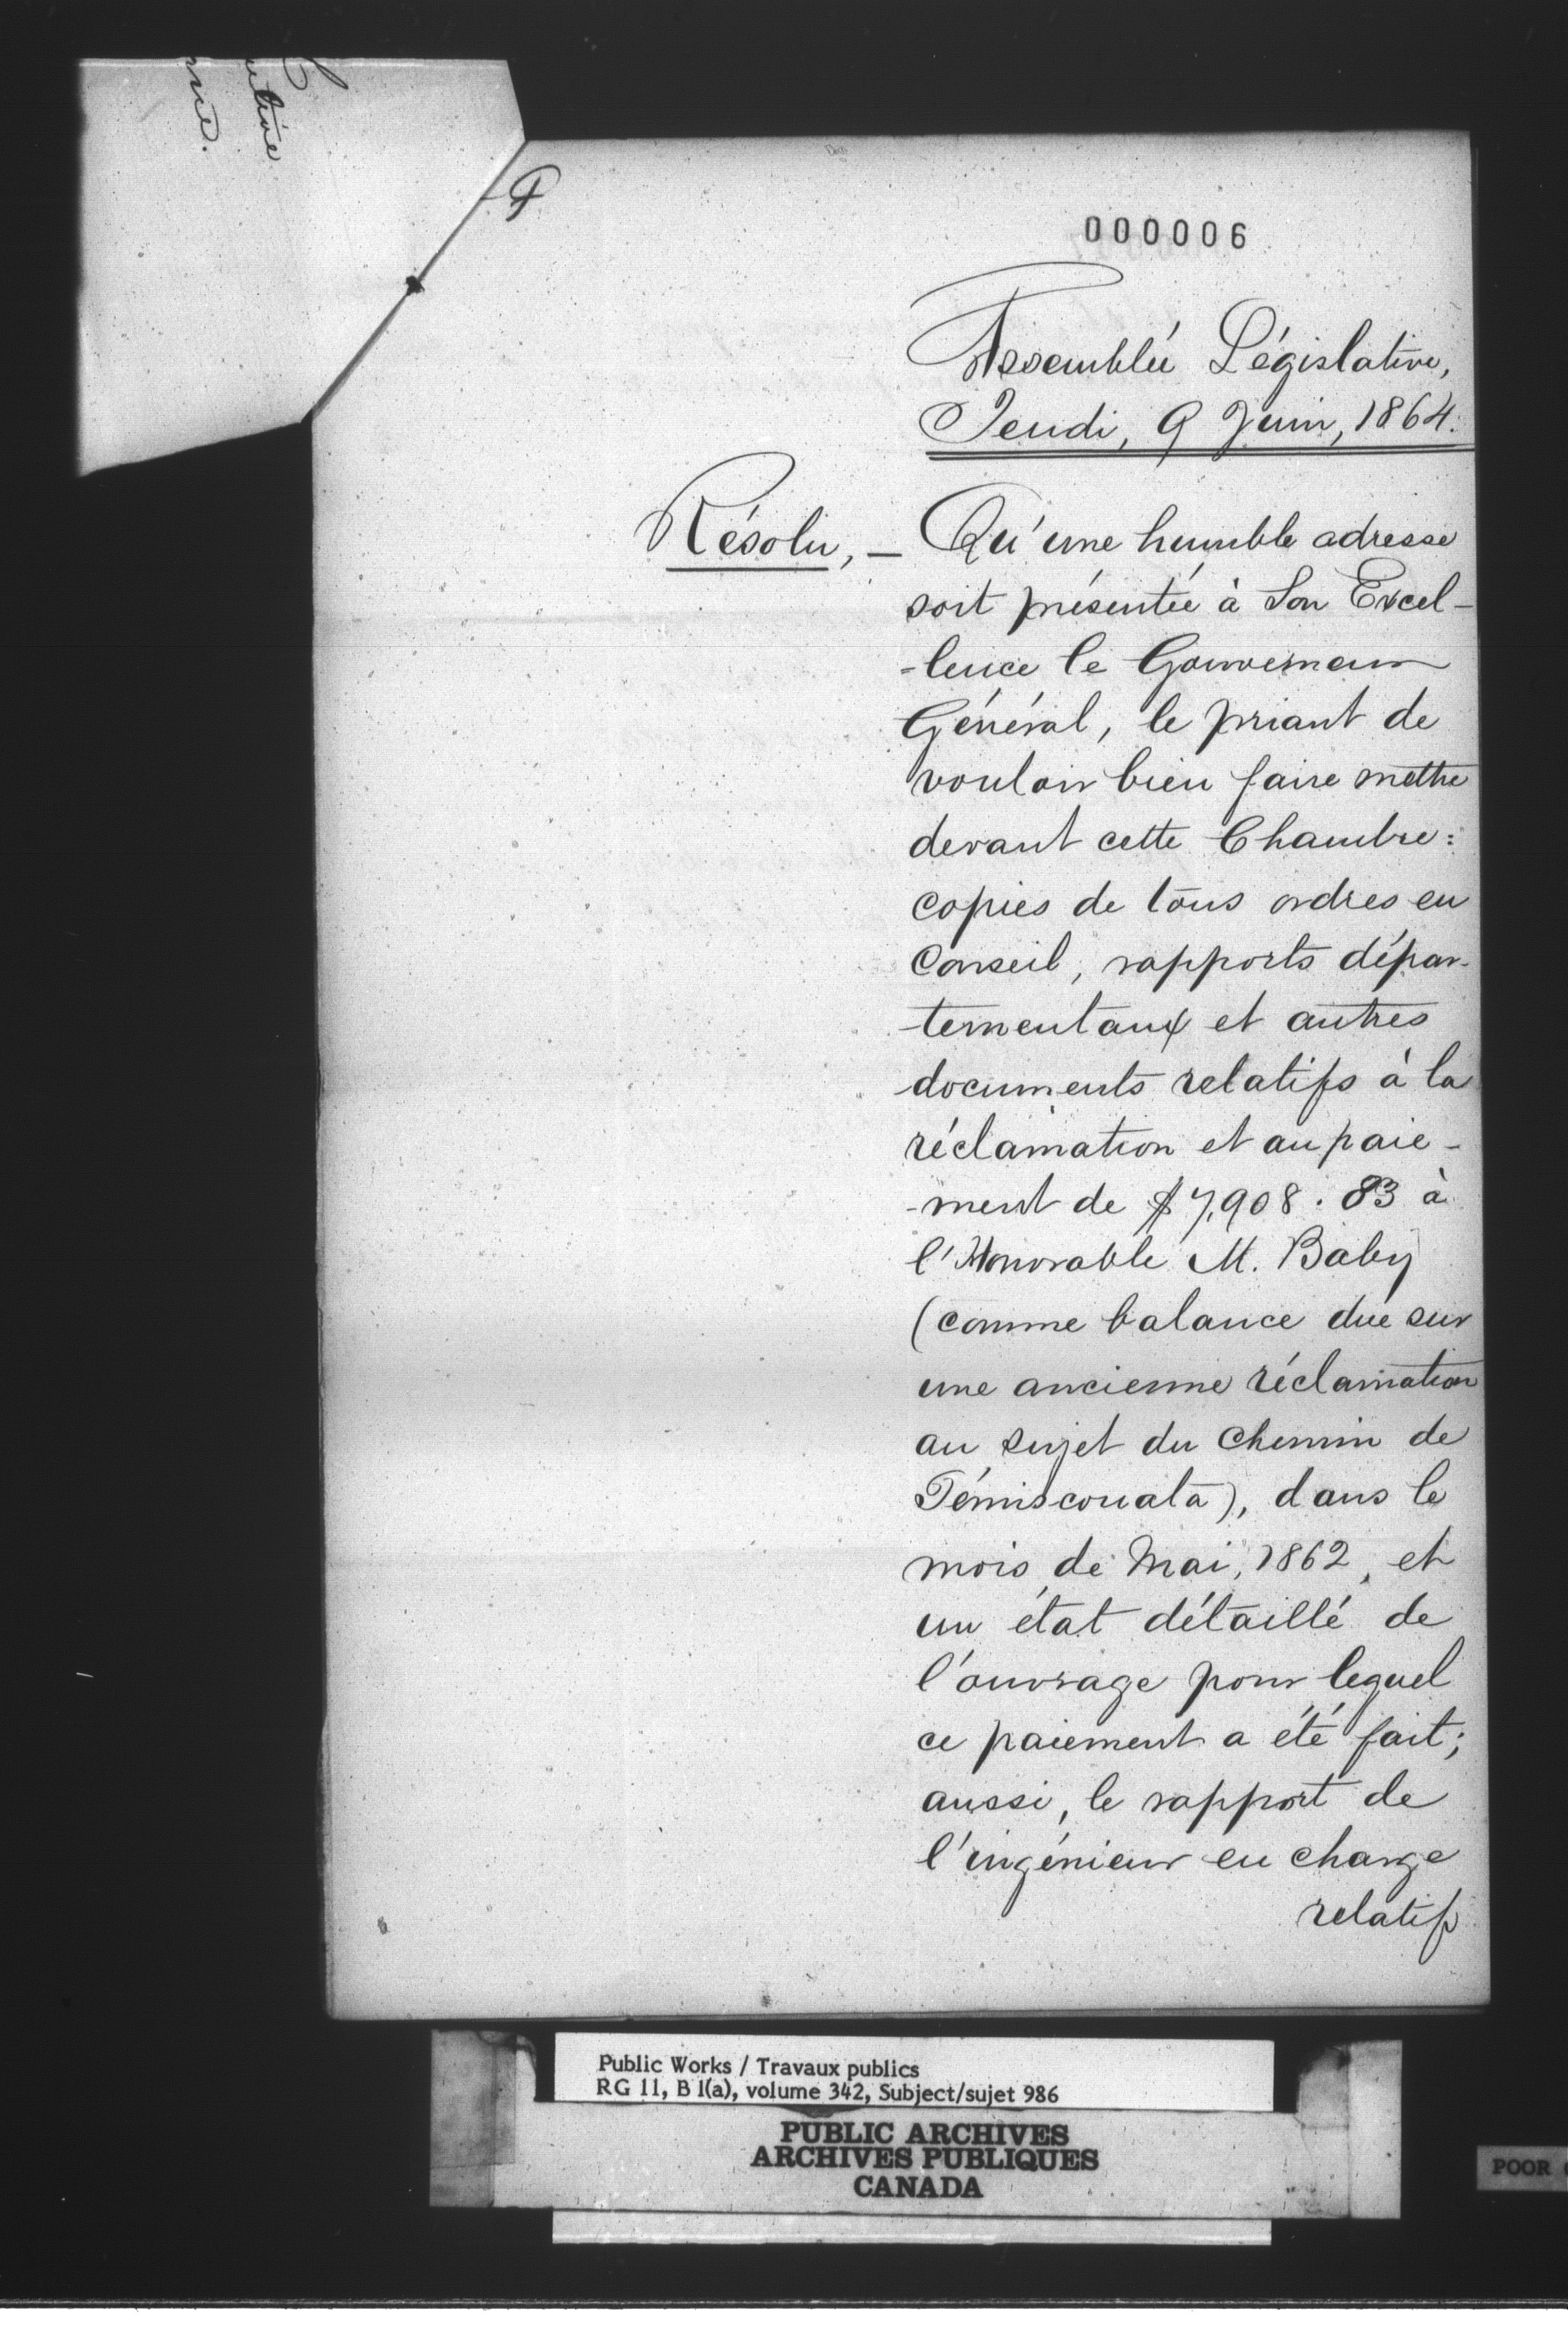 000006
Assemblée Législative,
Jeudi, 9 Juin, 1864.
Résolu, — Qu'une humble adresse
soit présentée à Son Excel-
-lence le Gouverneur
Général, le priant de
vouloir bien faire mettre
devant cette Chambre:
copies de tous ordres en
Conseil, rapports dépar-
-tementaux et autres
documents relatifs à la
réclamation et au paie-
-ment de $7,908.83 à
l'Honorable M. Baby
(comme balance due sur
une ancienne réclamation
au sujet du Chemin de
Témiscouata), dans le
mois de Mai, 1862, et
un état détaillé de
l'ouvrage pour lequel
ce paiement a été fait;
aussi, le rapport de
l'ingénieur en charge
relatif
Public Works / Travaux publics
RG 11, B 1(a), volume 342, Subject/sujet 986
PUBLIC ARCHIVES
ARCHIVES PUBLIQUES
CANADA
POOR